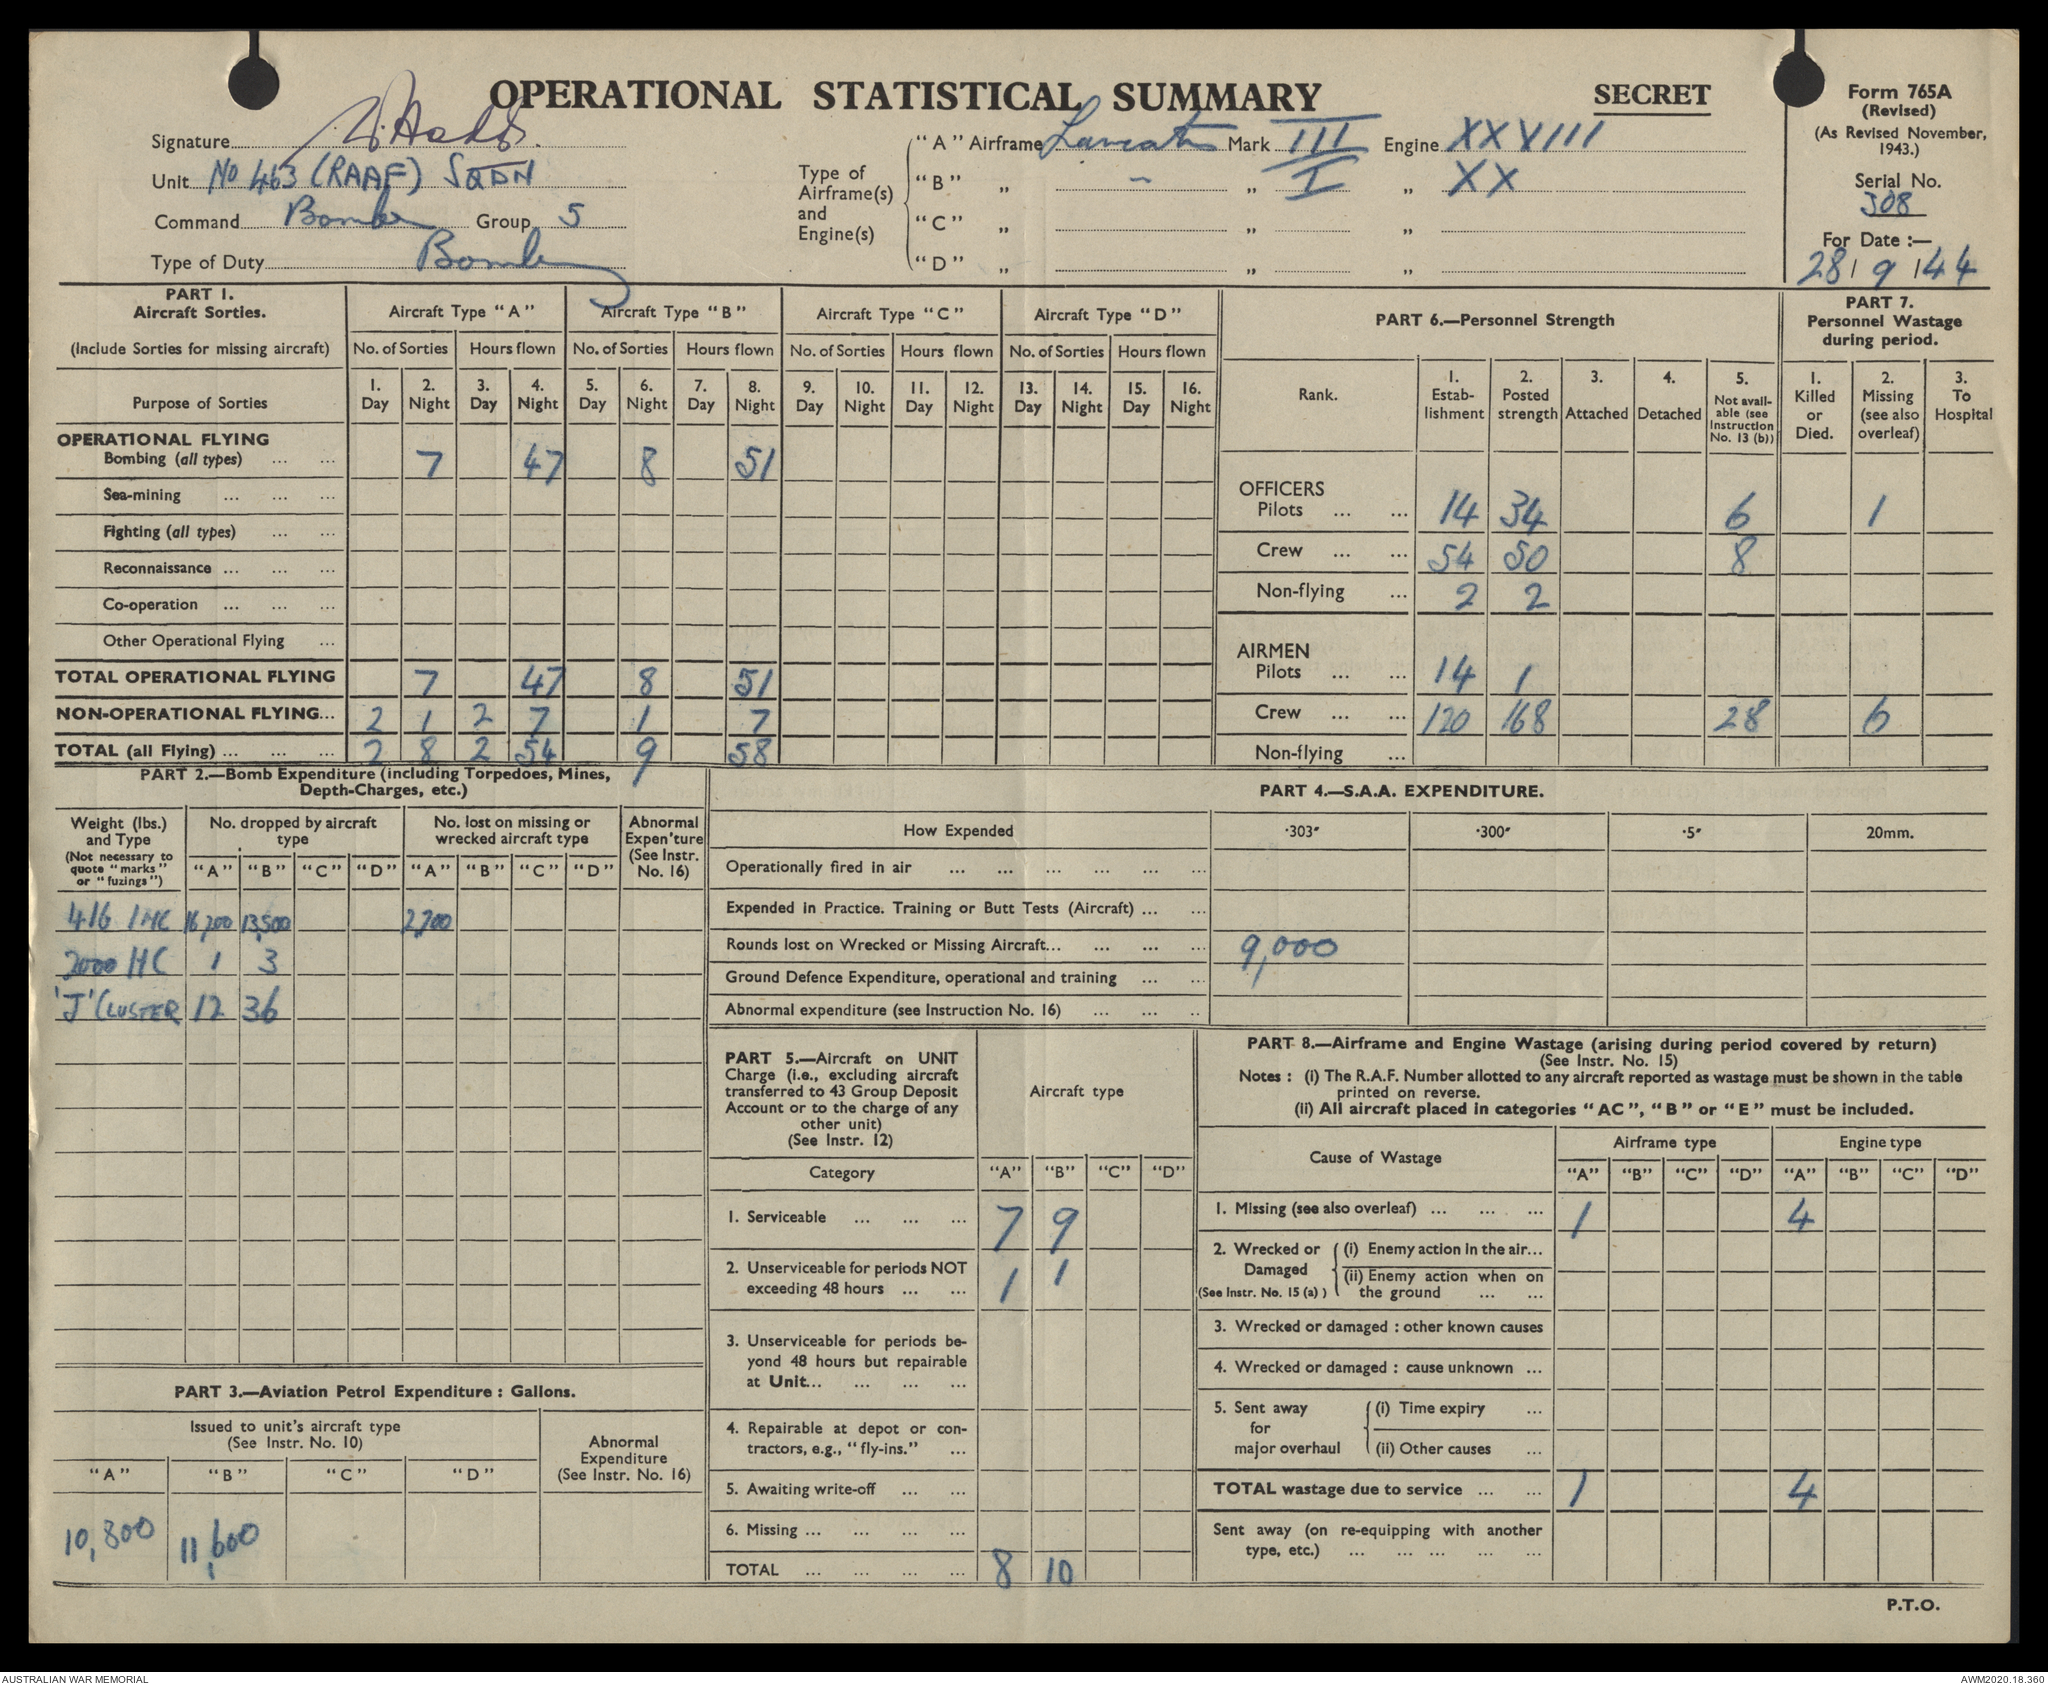 OPERATIONAL STATISTICAL SUMMARY
SECRET
Form 765A
(Revised)
(As Revised November, 1943.)
Serial No.
308
For Date :—
28 / 9 / 44
Signature
Unit No 463 (RAAF) SQDN
Command Bomber Group 5
Type of Duty Bombing
Type of Airframe(s) and Engine(s)
"A" Airframe Lancaster Mark III Engine XXXVIII
"B" „ – „ I „ XX
"C" „ „ „
"D" „ „ „
PART 1.
Aircraft Sorties.
(Include Sorties for missing aircraft)
Purpose of Sorties
Aircraft Type "A" Aircraft Type "B" Aircraft Type "C" Aircraft Type "D"
No. of Sorties Hours flown No. of Sorties Hours flown No. of Sorties Hours flown No. of Sorties Hours flown
1. Day 2. Night 3. Day 4. Night 5. Day 6. Night 7. Day 8. Night 9. Day 10. Night 11. Day 12. Night 13. Day 14. Night 15. Day 16. Night
OPERATIONAL FLYING
Bombing (all types) ... ... 7 47 8 51
Sea-mining ... ... ...
Fighting (all types) ... ...
Reconnaissance ... ... ...
Co-operation ... ... ...
Other Operational Flying ...
TOTAL OPERATIONAL FLYING 7 47 8 51
NON-OPERATIONAL FLYING... 2 1 2 7 1 7
TOTAL (all Flying) ... ... ... 2 8 2 54 9 58
PART 6.—Personnel Strength
Rank.
1. Estab-lishment
2. Posted strength
3. Attached
4. Detached
5. Not avail-able (see Instruction No. 13 (b))
PART 7.
Personnel Wastage during period.
1. Killed or Died.
2. Missing (see also overleaf)
3. To Hospital
OFFICERS
Pilots ... ... 14 34 6 1
Crew ... ... 54 50 8
Non-flying ... 2 2
AIRMEN
Pilots ... ... 14 1
Crew ... ... 120 168 28 6
Non-flying ...
PART 2.—Bomb Expenditure (including Torpedoes, Mines,
Depth-Charges, etc.)
Weight (lbs.) and Type
(Not necessary to quote "marks" or "fuzings")
No. dropped by aircraft type
No. lost on missing or wrecked aircraft type
Abnormal Expen'ture (See Instr. No. 16)
"A" "B" "C" "D" "A" "B" "C" "D"
4 lb INC 16,200 13,500 2,700
2000 HC 1 3
'J' CLUSTER 12 36
PART 4.—S.A.A. EXPENDITURE.
How Expended ·303" ·300" ·5" 20mm.
Operationally fired in air ... ... ... ... ... ...
Expended in Practice. Training or Butt Tests (Aircraft) ... ...
Rounds lost on Wrecked or Missing Aircraft... ... ... ... 9,000
Ground Defence Expenditure, operational and training ... ...
Abnormal expenditure (see Instruction No. 16) ... ... ..
PART 3.—Aviation Petrol Expenditure : Gallons.
Issued to unit's aircraft type
(See Instr. No. 10)
Abnormal Expenditure (See Instr. No. 16)
"A" "B" "C" "D"
10,800 11,600
PART 5.—Aircraft on UNIT
Charge (i.e., excluding aircraft
transferred to 43 Group Deposit
Account or to the charge of any
other unit)
(See Instr. 12)
Aircraft type
Category "A" "B" "C" "D"
1. Serviceable ... ... ... 7 9
2. Unserviceable for periods NOT
exceeding 48 hours ... ... 1 1
3. Unserviceable for periods be-
yond 48 hours but repairable
at Unit... ... ... ...
4. Repairable at depot or con-
tractors, e.g., "fly-ins." ...
5. Awaiting write-off ... ...
6. Missing ... ... ... ...
TOTAL ... ... ... ... 8 10
PART 8.—Airframe and Engine Wastage (arising during period covered by return)
(See Instr. No. 15)
Notes : (i) The R.A.F. Number allotted to any aircraft reported as wastage must be shown in the table
printed on reverse.
(ii) All aircraft placed in categories "AC", "B" or "E" must be included.
Cause of Wastage
Airframe type Engine type
"A" "B" "C" "D" "A" "B" "C" "D"
1. Missing (see also overleaf) ... ... ... 1 4
2. Wrecked or Damaged (See Instr. No. 15 (a) )
(i) Enemy action in the air...
(ii) Enemy action when on
the ground ... ...
3. Wrecked or damaged : other known causes
4. Wrecked or damaged : cause unknown ...
5. Sent away for major overhaul
(i) Time expiry ...
(ii) Other causes ...
TOTAL wastage due to service ... ... 1 4
Sent away (on re-equipping with another
type, etc.) ... ... ... ... ...
P.T.O.
AUSTRALIAN WAR MEMORIAL
AWM2020.18.360